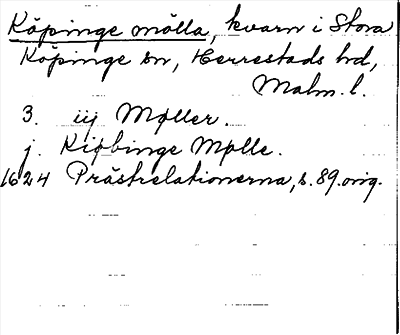 Köpinge mölla, kvarn i Stora
Köpinge sn, Herrestads hd,
Malm. l.
3. iij Møller.
j. Kiøbinge Mølle.
1624 Prästrelationerna, s. 89. orig.